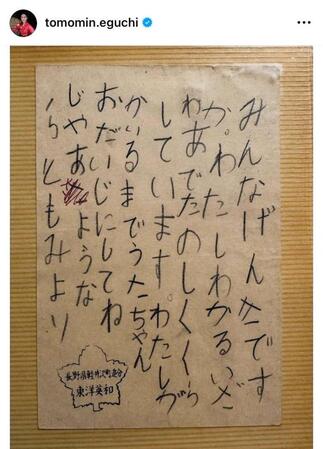 tomomin.eguchi
みんなげんきです
か。わたしわかるいざ
わあでたのしくくら
しています。わたしが
かいるまで
おだいじにしてね
じゃあさような
らともみより
長野県軽井沢町追分
東洋英和